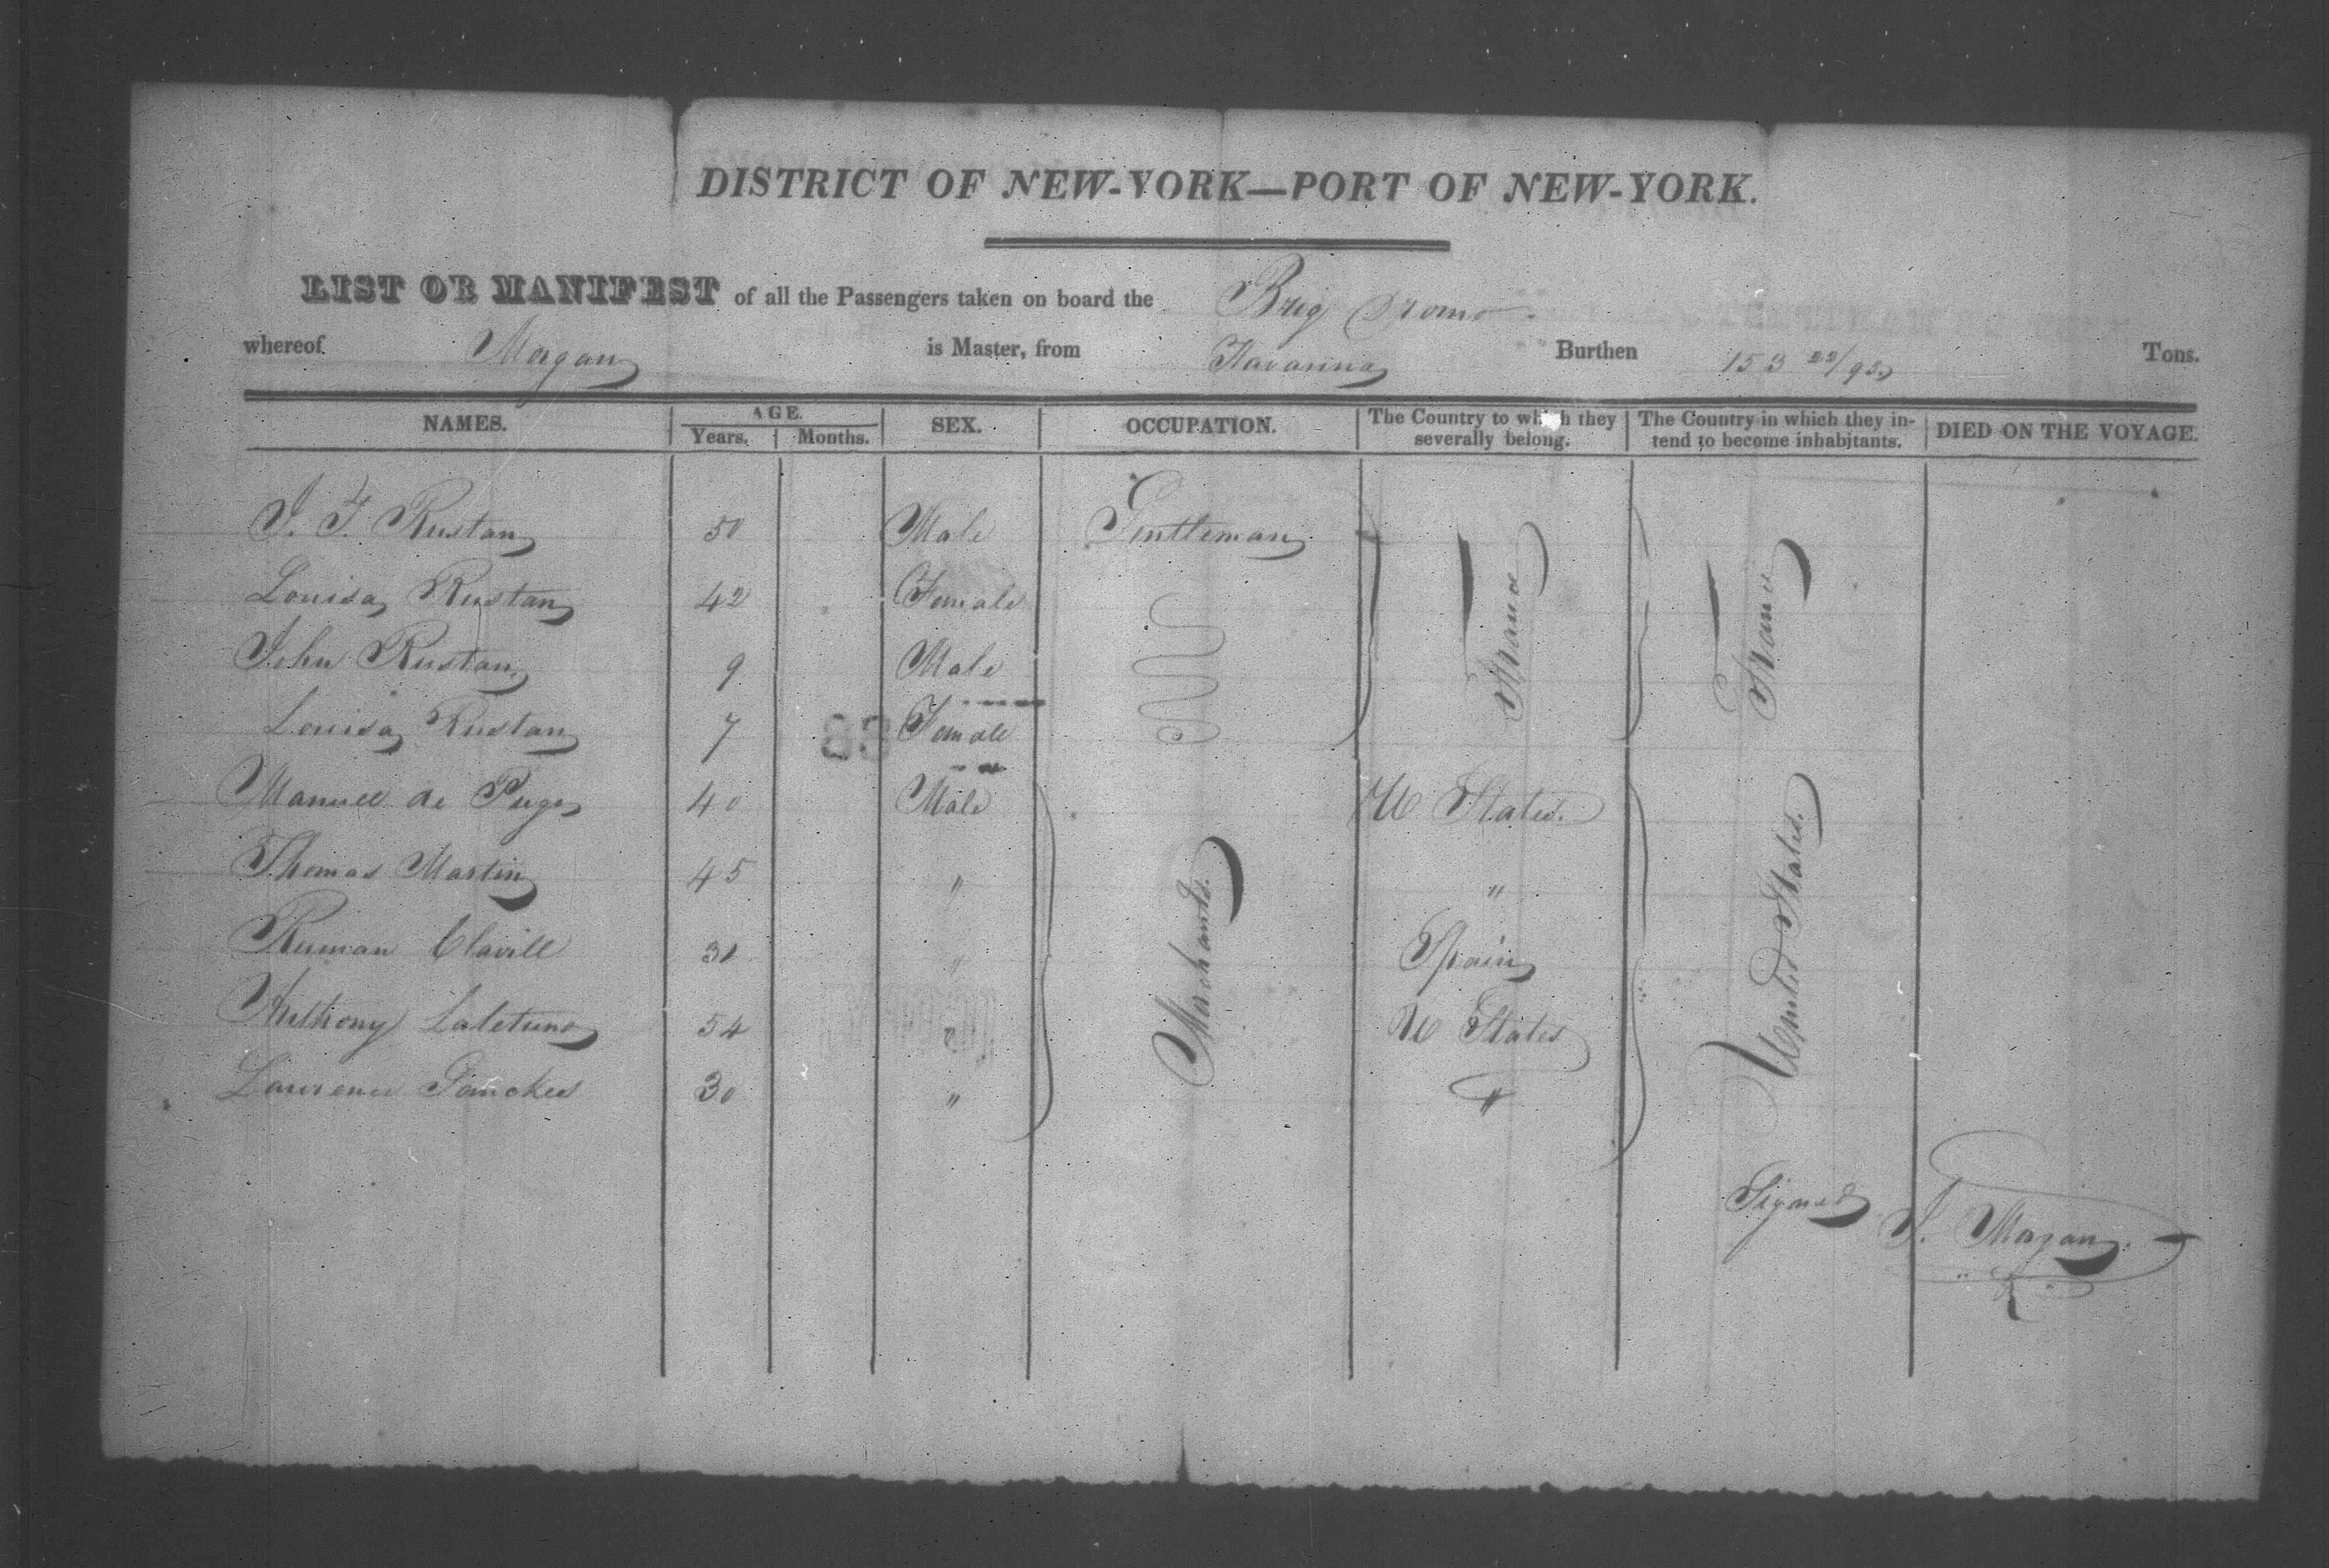 DISTRICT OF NEW-YORK—PORT OF NEW-YORK.
LIST OR MANIFEST of all the Passengers taken on board the Brig
whereof Morgan is Master, from Havanna Burthen 153 22/95 Tons.
NAMES. AGE. Years. Months. SEX. OCCUPATION. The Country to which they severally belong. The Country in which they intend to become inhabitants. DIED ON THE VOYAGE.
J. F. Rustan 50 Male Gentleman France France
Louisa Rustan 42 Female
John Rustan 9 Male
Louisa Rustan 7 Female
83
Manuel de Puga 40 Male Merchants. U States. United States.
Thomas Martin 45 " "
Clavill 30 " Spain
Anthony 54 " U States
Lawrence 30 " "
Signed J. Morgan.